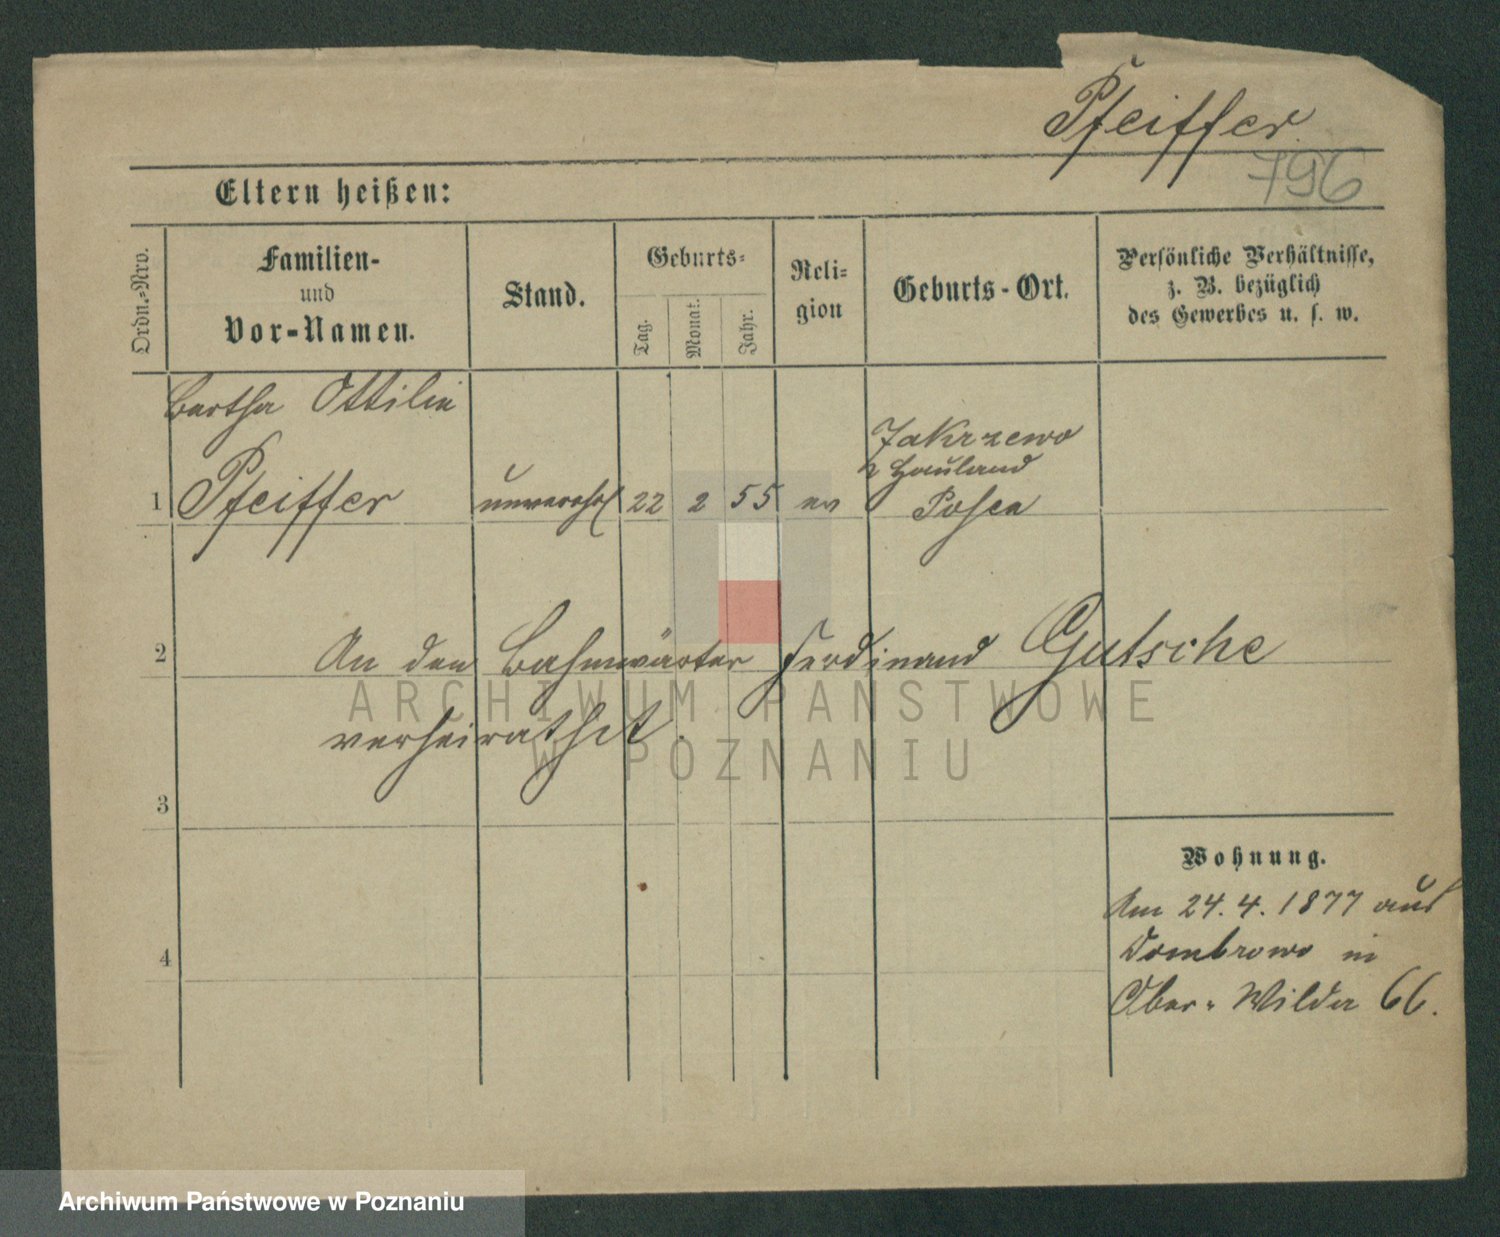 Pfeiffer
796
Eltern heißen:
Ordn.-Nro.
Familien-
und
Vor-Namen.
Stand.
Geburts-
Tag.
Monat.
Jahr.
Reli-
gion
Geburts-Ort.
Persönliche Verhältnisse,
z. B. bezüglich
des Gewerbes u. s. w.
Bertha Ottilie
1 Pfeiffer
unverehl 22 2 55 ev
Zakrzewo
Hauland
Posen
2 An den Bahnwärter Ferdinand Gutsche
verheirathet.
3
4
Wohnung.
Am 24.4.1877 aus
Dombrowo in
Ober-Wilda 66.
ARCHIWUM PAŃSTWOWE
W POZNANIU
Archiwum Państwowe w Poznaniu